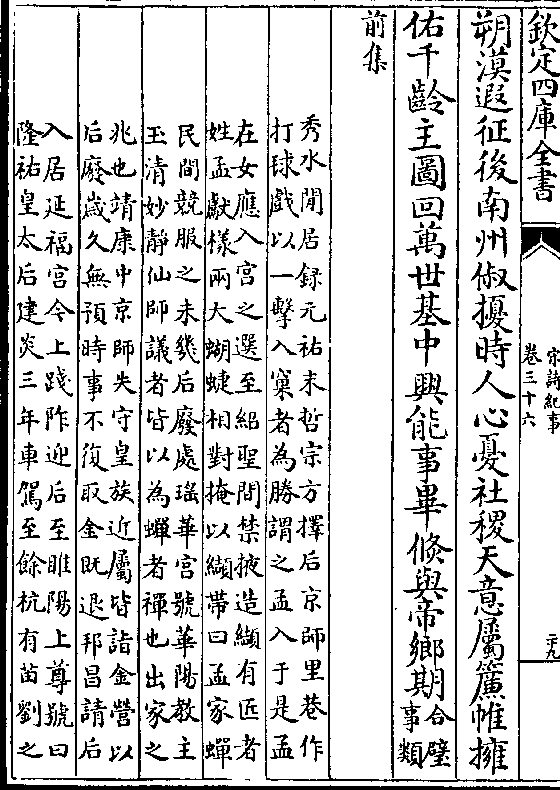 欽定四庫全書
宋詩紀事
卷三十六
二十九
朔漠遐征後南州俶擾時人心憂社稷天意屬簾帷擁
佑千齡主圖回萬世基中興能事畢倐與帝鄉期合璧
事類
前集
秀水閒居錄元祐末哲宗方擇后京師里巷作
打球戲以一擊入窠者為勝謂之孟入于是孟
在女應入宮之選至紹聖間禁掖造纈有匠者
姓孟獻樣兩大蝴蜨相對掩以纈帶曰孟家蟬
民間競服之未幾后廢處瑤華宮號華陽教主
玉清妙靜仙師議者皆以為蟬者禪也出家之
兆也靖康中京師失守皇族近屬皆詣金營以
后廢歲久無預時事不復取金既退邦昌請后
入居延福宮今上踐阼迎后至睢陽上尊號曰
隆祐皇太后建炎三年車駕至餘杭有苗劉之